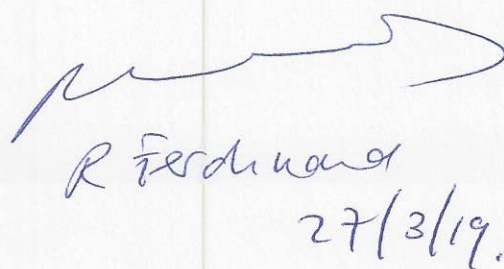 R Ferdinand
27/3/19.